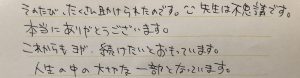 そのたび、たくさん助けられたのです。先生は不思議です。
本当にありがとうございます。
これからもヨガ、続けたいとおもっています。
人生の中の大切な一部となっています。